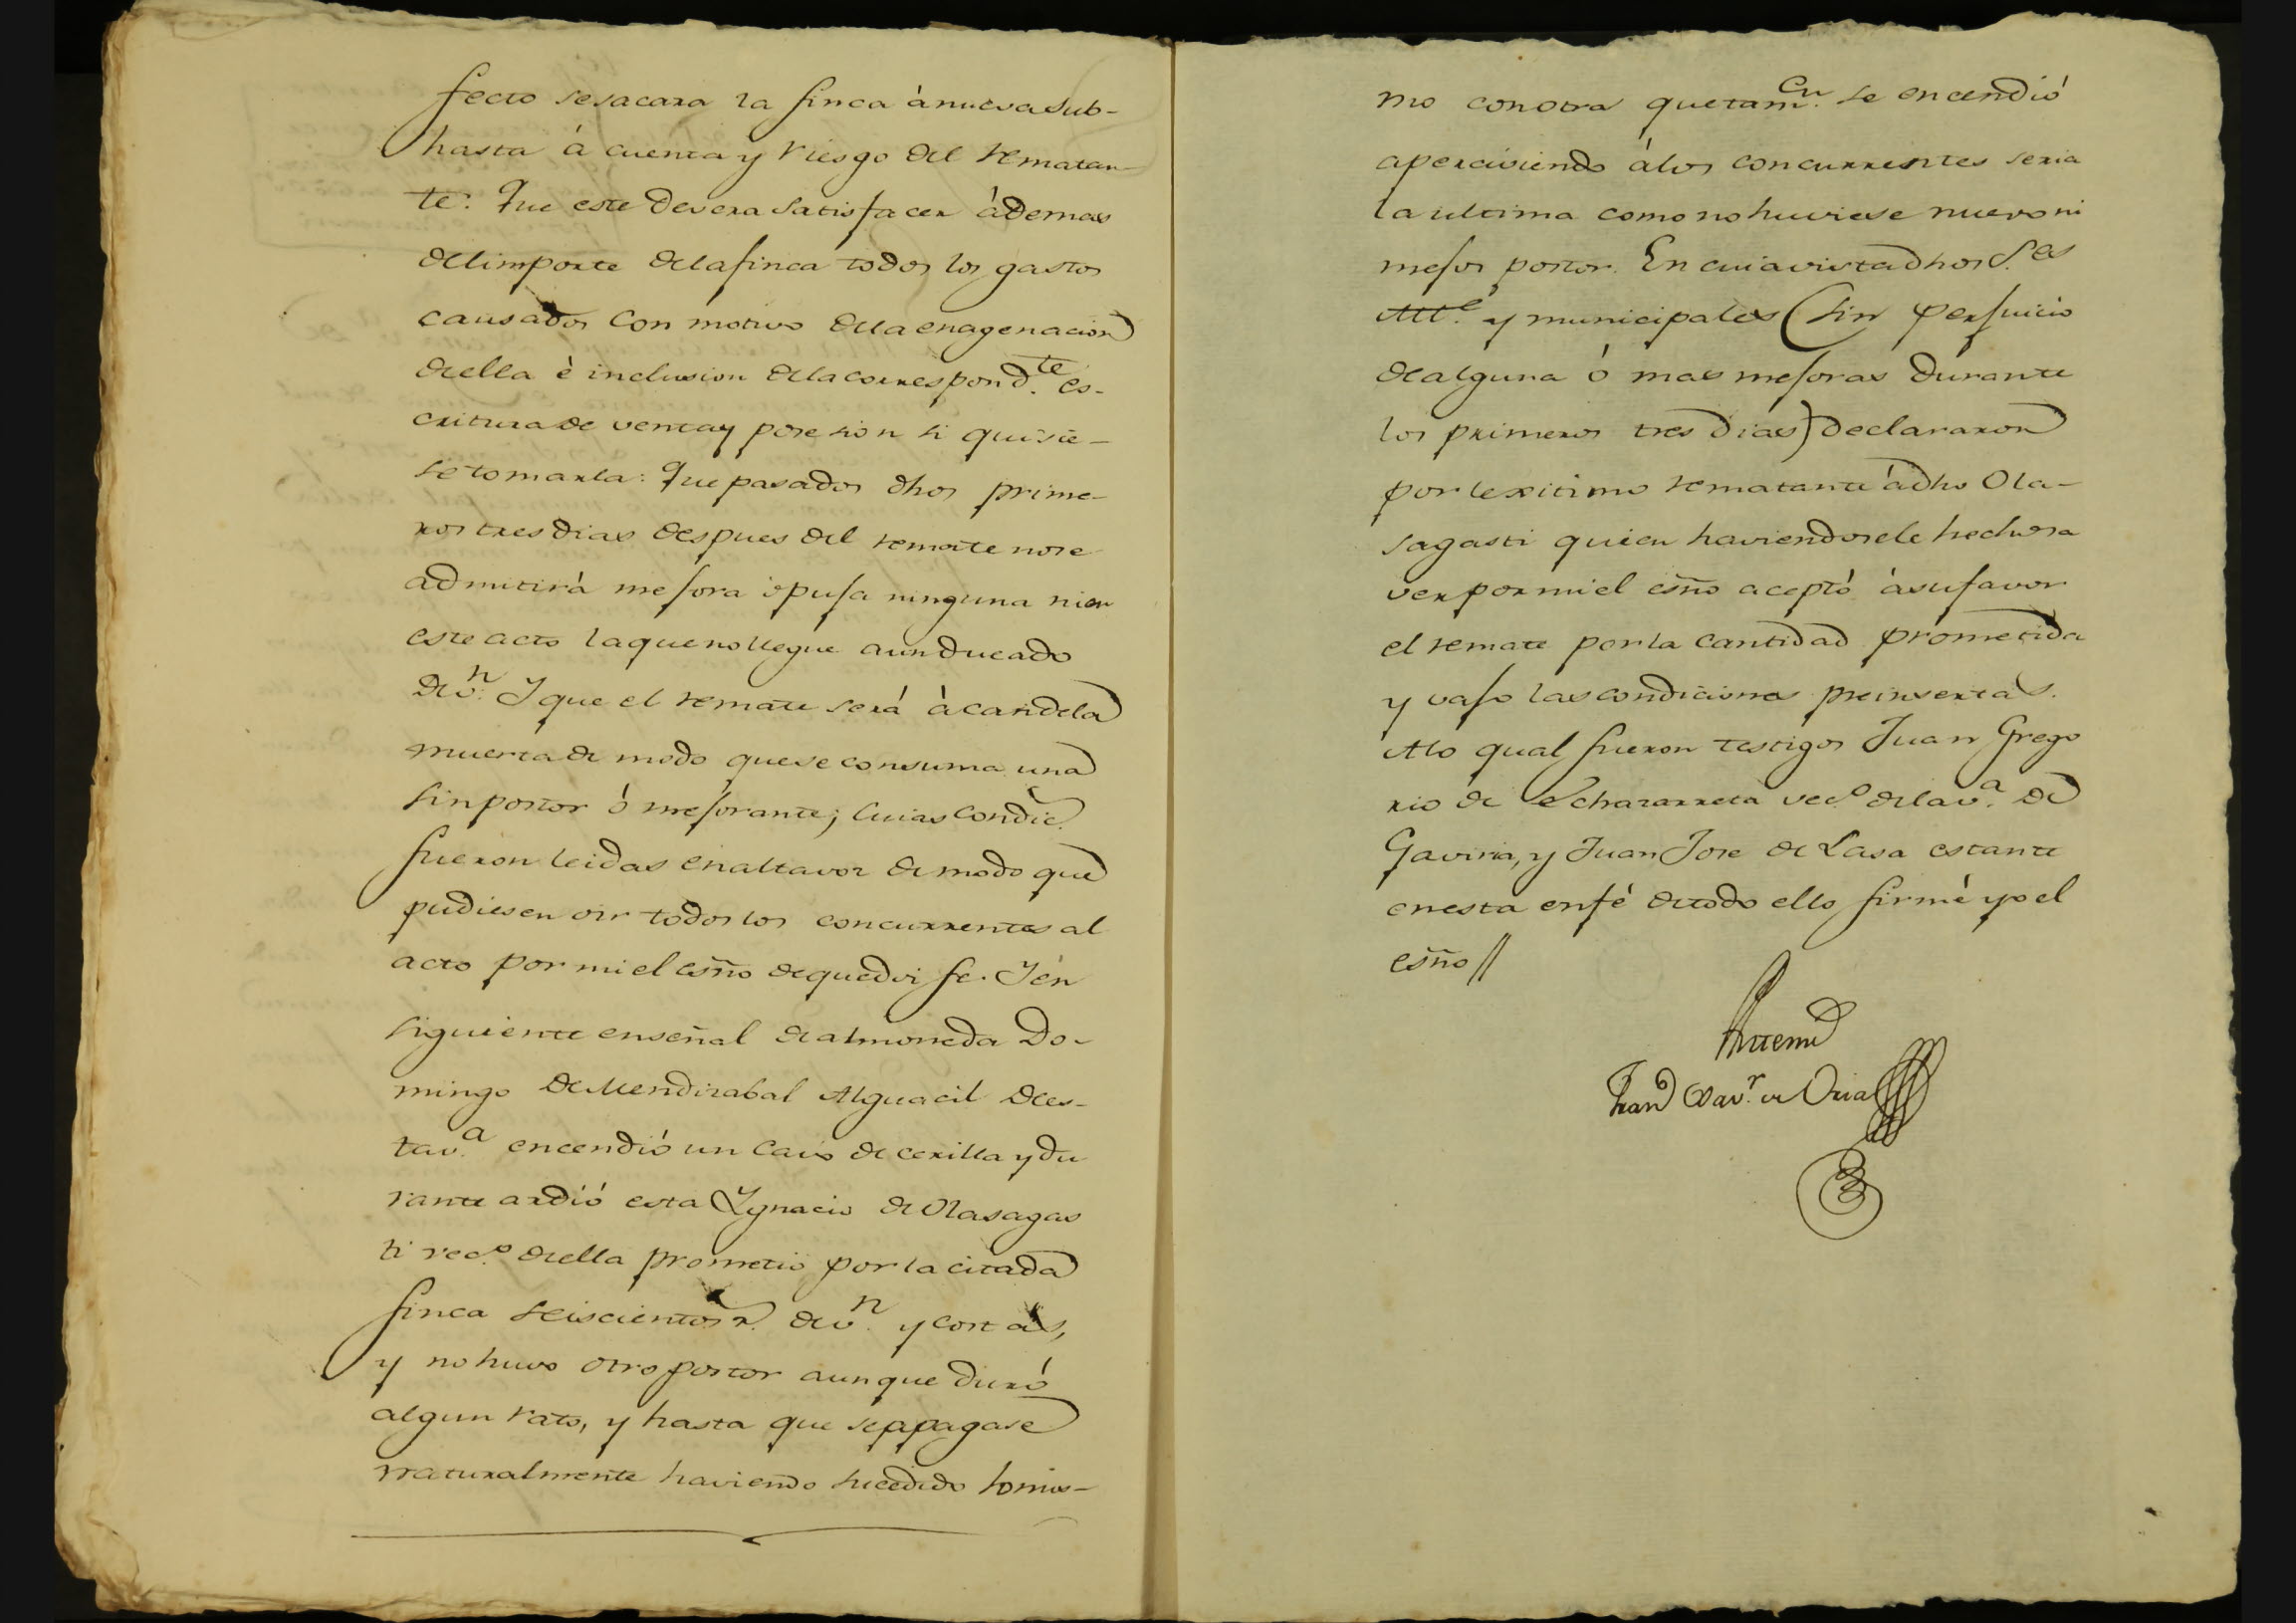 fecto se sacara la finca à nueva sub-
hasta á cuenta y riesgo del rematan-
te. Que este devera satisfacer àdemas
del importe dela finca todos los gastos
causados con motivo dela enagenacion
de ella è inclusion dela correspond.te es-
critura de venta y posesion si quisie-
se tomarla: Que pasados dhos prime-
ros tres dias despues del remate no se
admitirà mejora ò puja ninguna ni en
este acto la que no llegue a un ducado
de v.n Y que el remate será à candela
muerta de modo que se consuma una
sin postor ó mejorante; cuias condic.
fueron leidas en alta voz de modo que
pudiesen oir todos los concurrentes al
acto por mi el esño de que doi fe. Y en
siguiente en señal de almoneda Do-
mingo de Mendizabal Alguacil de es-
ta v.a encendió un cavo de cerilla y du
rante ardió esta Ygnacio de Olasagas
ti vec.o de ella prometio por la citada
finca seiscientos r. de v.n y costas,
y no huvo otro postor aunque duró
algun rato, y hasta que se apagase
naturalmente haviendo sucedido lo mis-
mo con otra que tam.en se encendió
aperciviendo álos concurrentes seria
la ultima como no huviese nuevo ni
mejor postor. En cuia vista dhos S.es
Alc.e y municipales (sin perjuicio
de alguna ó mas mejoras durante
los primeros tres dias) declararon
por lexitimo rematante á dho Ola-
sagasti quien haviendosele hecho sa
ver por mi el esño aceptó à su favor
el remate por la cantidad prometida
y vajo las condiciones preinsertas.
A lo qual fueron testigos Juan Grego
rio de Echazarreta vec.o dela v.a de
Gaviria, y Juan Jose de Lasa estante
en esta en fé de todo ello firmé yo el
esño //
Ante mi
Fran.co Xav.r de Oria